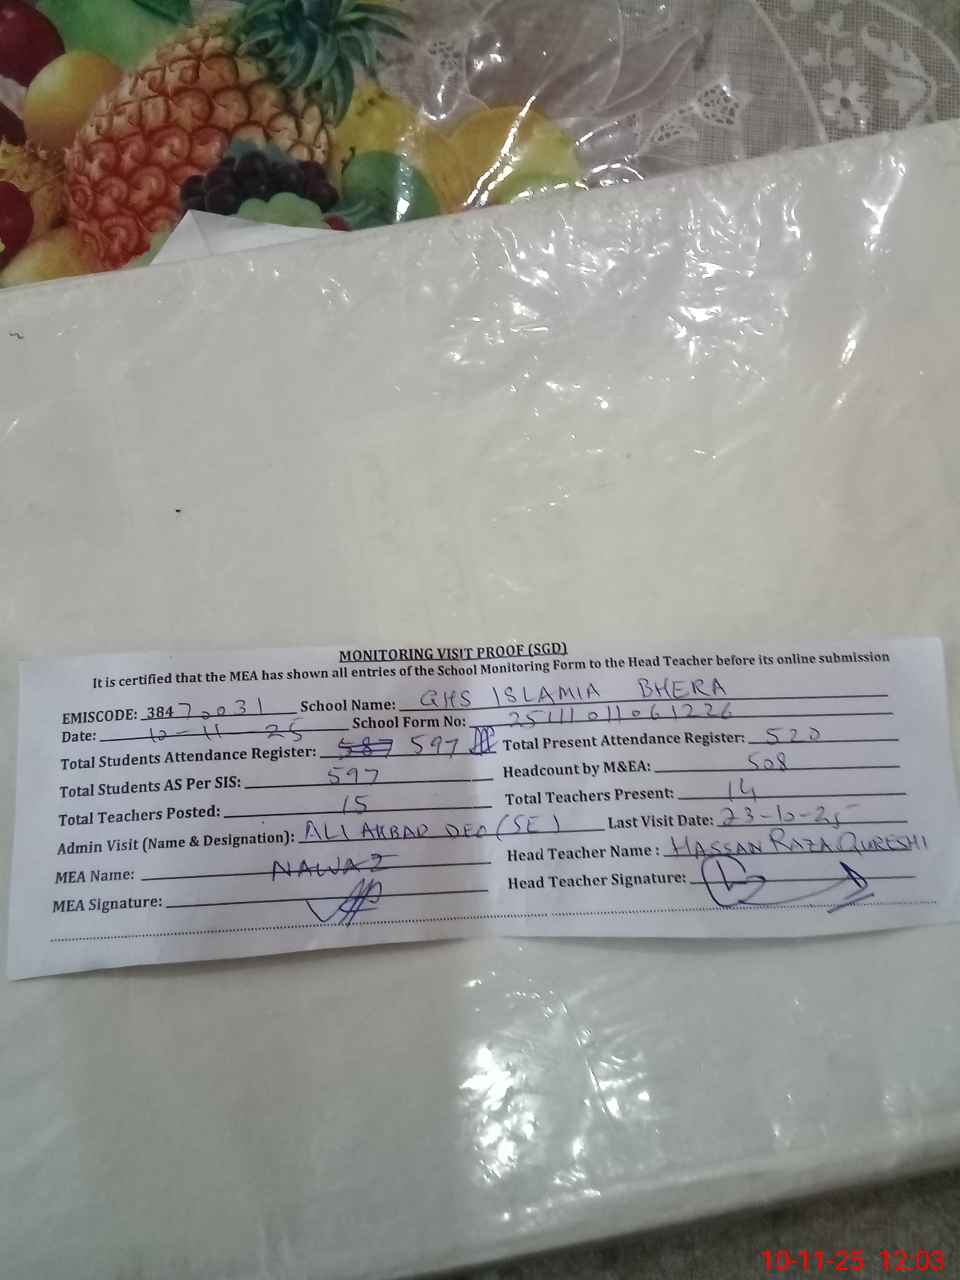 MONITORING VISIT PROOF (SGD)
It is certified that the MEA has shown all entries of the School Monitoring Form to the Head Teacher before its online submission
EMISCODE: 38470031 School Name: GHS ISLAMIA BHERA
Date: 10-11-25 School Form No: 2511101106 1226
Total Students Attendance Register: 587 597 Total Present Attendance Register: 520
Total Students AS Per SIS: 597 Headcount by M&EA: 508
Total Teachers Posted: 15 Total Teachers Present: 14
Admin Visit (Name & Designation): ALI AKBAR DEO (SE) Last Visit Date: 23-10-25
MEA Name: NAWAZ Head Teacher Name : HASSAN RAZA QURESHI
MEA Signature: Head Teacher Signature:
10-11-25 12:03